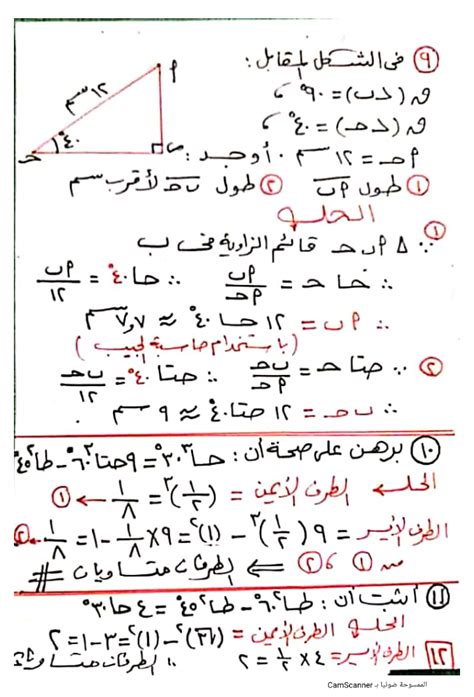 ٩ فى الشكل المقابل:
ق (∠ب) = ٩٠°،
ق (∠حـ) = ٤٠°،
١٢ سم
٤٠°
م حـ = ١٢ سم. أوجد:
١ طول م ب ٢ طول ب حـ لأقرب سم
الحلـــ
١ ∵ Δ م ب حـ قائم الزاوية فى ب
∴ حا حـ = م ب / م حـ ∴ حا ٤٠° = م ب / ١٢
∴ م ب = ١٢ حا ٤٠° ≈ ٧,٧ سم
(باستخدام حاسبة الجيب)
٢ ∵ حتا حـ = ب حـ / م حـ ∴ حتا ٤٠° = ب حـ / ١٢
∴ ب حـ = ١٢ حتا ٤٠° ≈ ٩ سم.
١٠ برهن على صحة أن: حا³ ٣٠° = ٩ حتا³ ٦٠° - طا² ٤٥°
الحلــ الطرف الأيمن = (١/٢)³ = ١/٨ ← ١
الطرف الأيسر = ٩ (١/٢)³ - (١)² = ٩ × ١/٨ - ١ = ١/٨ ← ٢
من ١ ، ٢ ⇐ الطرفان متساويان #
١١ أثبت أن: طا² ٦٠° - طا² ٤٥° = ٤ حا ٣٠°
الحلـــ الطرف الأيمن = (√٣)² - (١)² = ٣ - ١ = ٢
١٢ الطرف الأيسر = ٤ × ١/٢ = ٢ ∴ الطرفان متساويان
الممسوحة ضوئيا بـ CamScanner